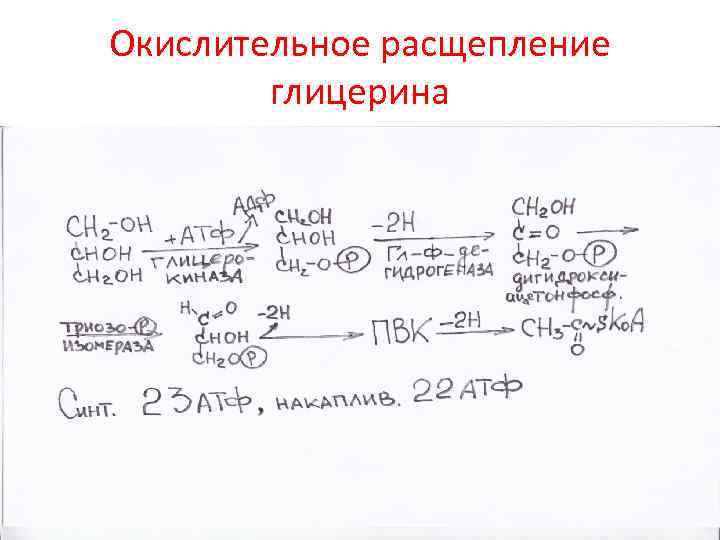 Окислительное расщепление
глицерина
CH₂-OH
CHOH
CH₂OH
+АТФ
АДФ
ГЛИЦЕРО-
КИНАЗА
CH₂OH
CHOH
CH₂-O-Ⓟ
-2H
ГЛ-Ф-ДЕ-
ГИДРОГЕНАЗА
CH₂OH
C=O
CH₂-O-Ⓟ
ДИГИДРОКСИ-
АЦЕТОНФОСФ.
ТРИОЗО-Ⓟ
ИЗОМЕРАЗА
H C=O
CHOH
CH₂OⓅ
-2H
ПВК
-2H
CH₃-C~SKoA
O
Синт. 23 АТФ, НАКАПЛИВ. 22 АТФ